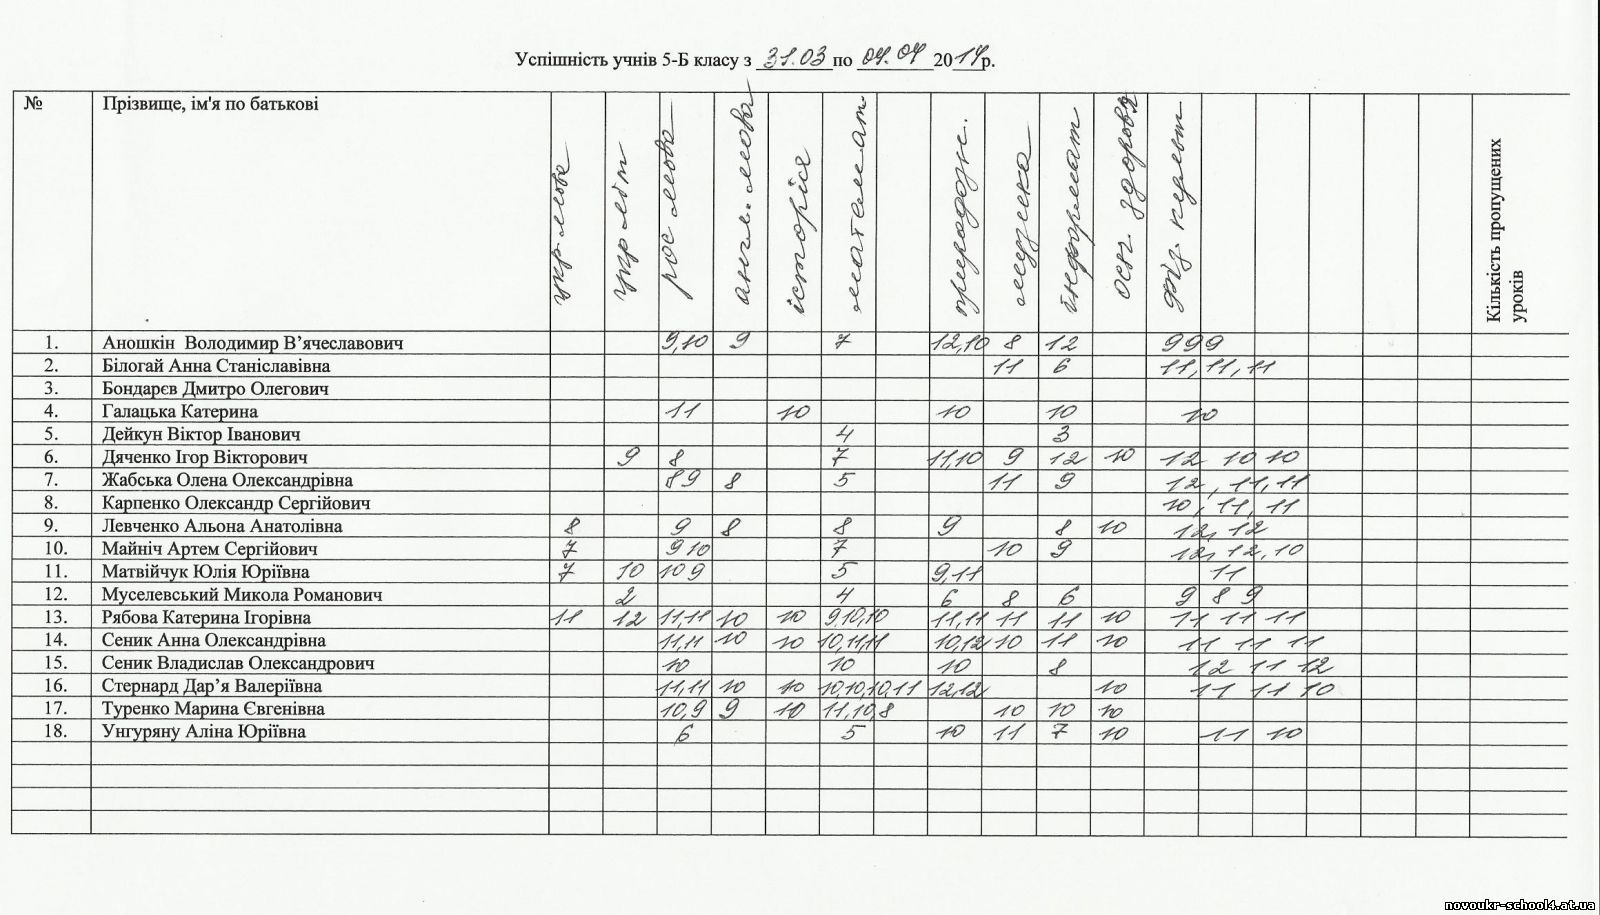 Успішність учнів 5-Б класу з 31.03 по 04.04 2014р.
№ Прізвище, ім'я по батькові укр мова укр літ рос мова англ. мова історія математ природозн. музика інформат осн. здоровя фіз. культ Кількість пропущених уроків
1. Аношкін Володимир В’ячеславович 9,10 9 7 12,10 8 12 9 9 9
2. Білогай Анна Станіславівна 11 6 11, 11, 11
3. Бондарєв Дмитро Олегович
4. Галацька Катерина 11 10 10 10 10
5. Дейкун Віктор Іванович 4 3
6. Дяченко Ігор Вікторович 9 8 7 11,10 9 12 10 12 10 10
7. Жабська Олена Олександрівна 8 9 8 5 11 9 12, 11, 11
8. Карпенко Олександр Сергійович 10, 11, 11
9. Левченко Альона Анатолівна 8 9 8 8 9 8 10 12, 12
10. Майніч Артем Сергійович 7 9 10 7 10 9 12, 12, 10
11. Матвійчук Юлія Юріївна 7 10 10 9 5 9,11 11
12. Муселевський Микола Романович 2 4 6 8 6 9 8 9
13. Рябова Катерина Ігорівна 11 12 11,11 10 10 9,10,10 11,11 11 11 10 11 11 11
14. Сеник Анна Олександрівна 11,11 10 10 10,11,11 10,12 10 11 10 11 11 11
15. Сеник Владислав Олександрович 10 10 10 8 12 11 12
16. Стернард Дар’я Валеріївна 11,11 10 10 10,10,10,11 12,12 10 11 11 10
17. Туренко Марина Євгенівна 10,9 9 10 11,10,8 10 10 10
18. Унгуряну Аліна Юріївна 6 5 10 11 7 10 11 10
novoukr-school4.at.ua